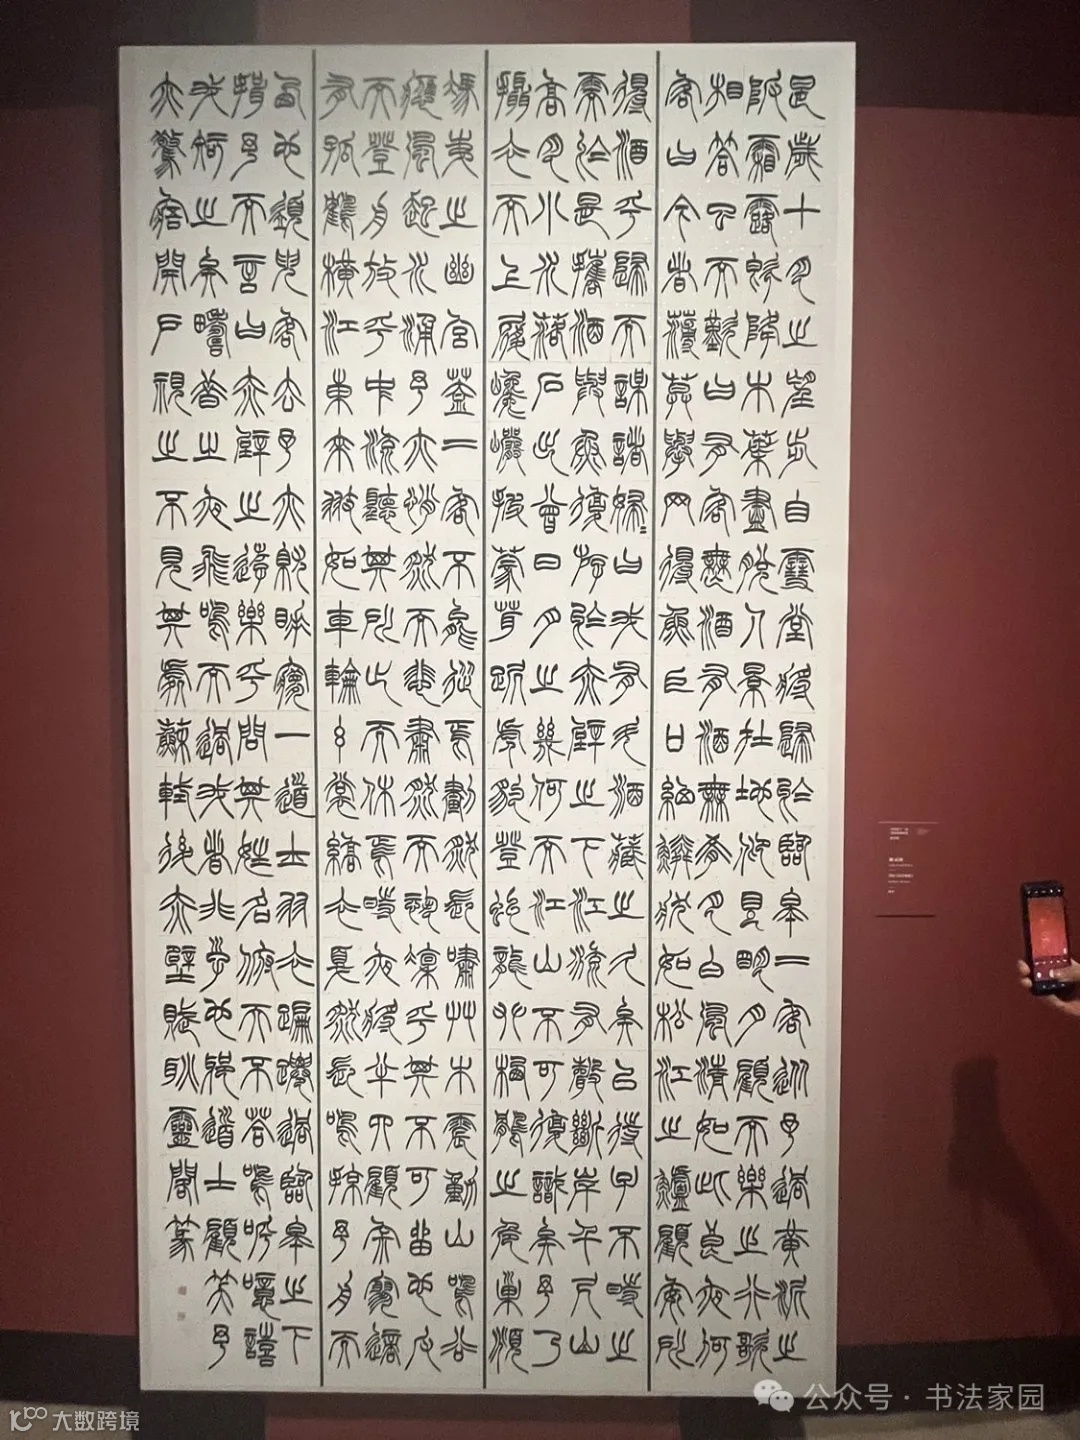 是歲十月之望步自雪堂將歸於臨皋二客從予過黃泥之
阪霜露既降木葉盡脫人景在地仰見明月顧而樂之行歌
相答已而歎曰有客無酒有酒無肴月白風清如此良夜何
客曰今者薄莫舉网得魚巨口細鱗狀如松江之鱸顧安所
得酒乎歸而謀諸婦=曰我有斗酒藏之久矣以待子不時之
需於是攜酒與魚復游於赤壁之下江流有聲斷岸千尺山
高月小水落石出曾日月之幾何而江山不可復識矣予乃
攝衣而上履巉巖披蒙茸踞虎豹登虯龍攀栖鶻之危巢俯
馮夷之幽宮蓋二客不能從焉劃然長嘯艸木震動山鳴谷
應風起水涌予亦悄然而悲肅然而恐凜乎其不可留也反
而登舟放乎中流聽其所止而休焉時夜將半四顧寂寥適
有孤鶴橫江東來翅如車輪玄裳縞衣戛然長鳴掠予舟而
西也須臾客去予亦就睡夢一道士羽衣蹁躚過臨皋之下
揖予而言曰赤壁之遊樂乎問其姓名俯而不答嗚呼噫嘻
我知之矣疇昔之夜飛鳴而過我者非子也耶道士顧笑予
亦驚寤開戶視之不見其處蘇軾後赤壁賦耿靈閣篆
公众号·书法家园
大数跨境